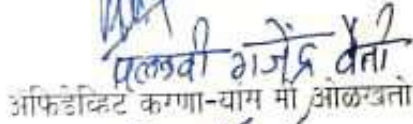 पल्लवी गजेंद्र वैती
अफिडेव्हिट करणा-यास मी ओळखतो